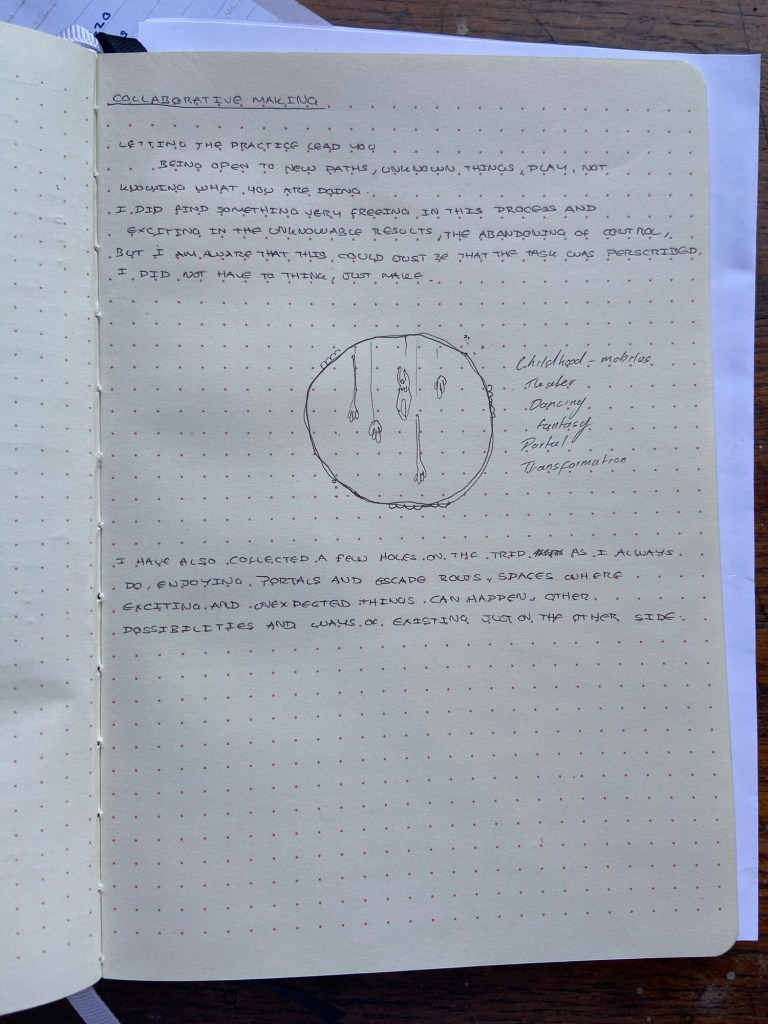 20
COLLABORATIVE MAKING
LETTING THE PRACTICE LEAD YOU
BEING OPEN TO NEW PATHS, UNKNOWN THINGS, PLAY, NOT
KNOWING WHAT YOU ARE DOING.
I DID FIND SOMETHING VERY FREEING IN THIS PROCESS AND
EXCITING IN THE UNKNOWABLE RESULTS, THE ABANDONING OF CONTROL,
BUT I AM AWARE THAT THIS COULD JUST BE THAT THE TASK WAS PERSCRIBED,
I DID NOT HAVE TO THINK, JUST MAKE.
Childhood - mobiles
Theater
Dancing
fantasy
Portal
Transformation
I HAVE ALSO COLLECTED A FEW HOLES ON THE TRIP AS I ALWAYS
DO, ENJOYING PORTALS AND ESCAPE ROUTS, SPACES WHERE
EXCITING AND UNEXPECTED THINGS CAN HAPPEN, OTHER
POSSIBILITIES AND WAYS OF EXISTING JUST ON THE OTHER SIDE.